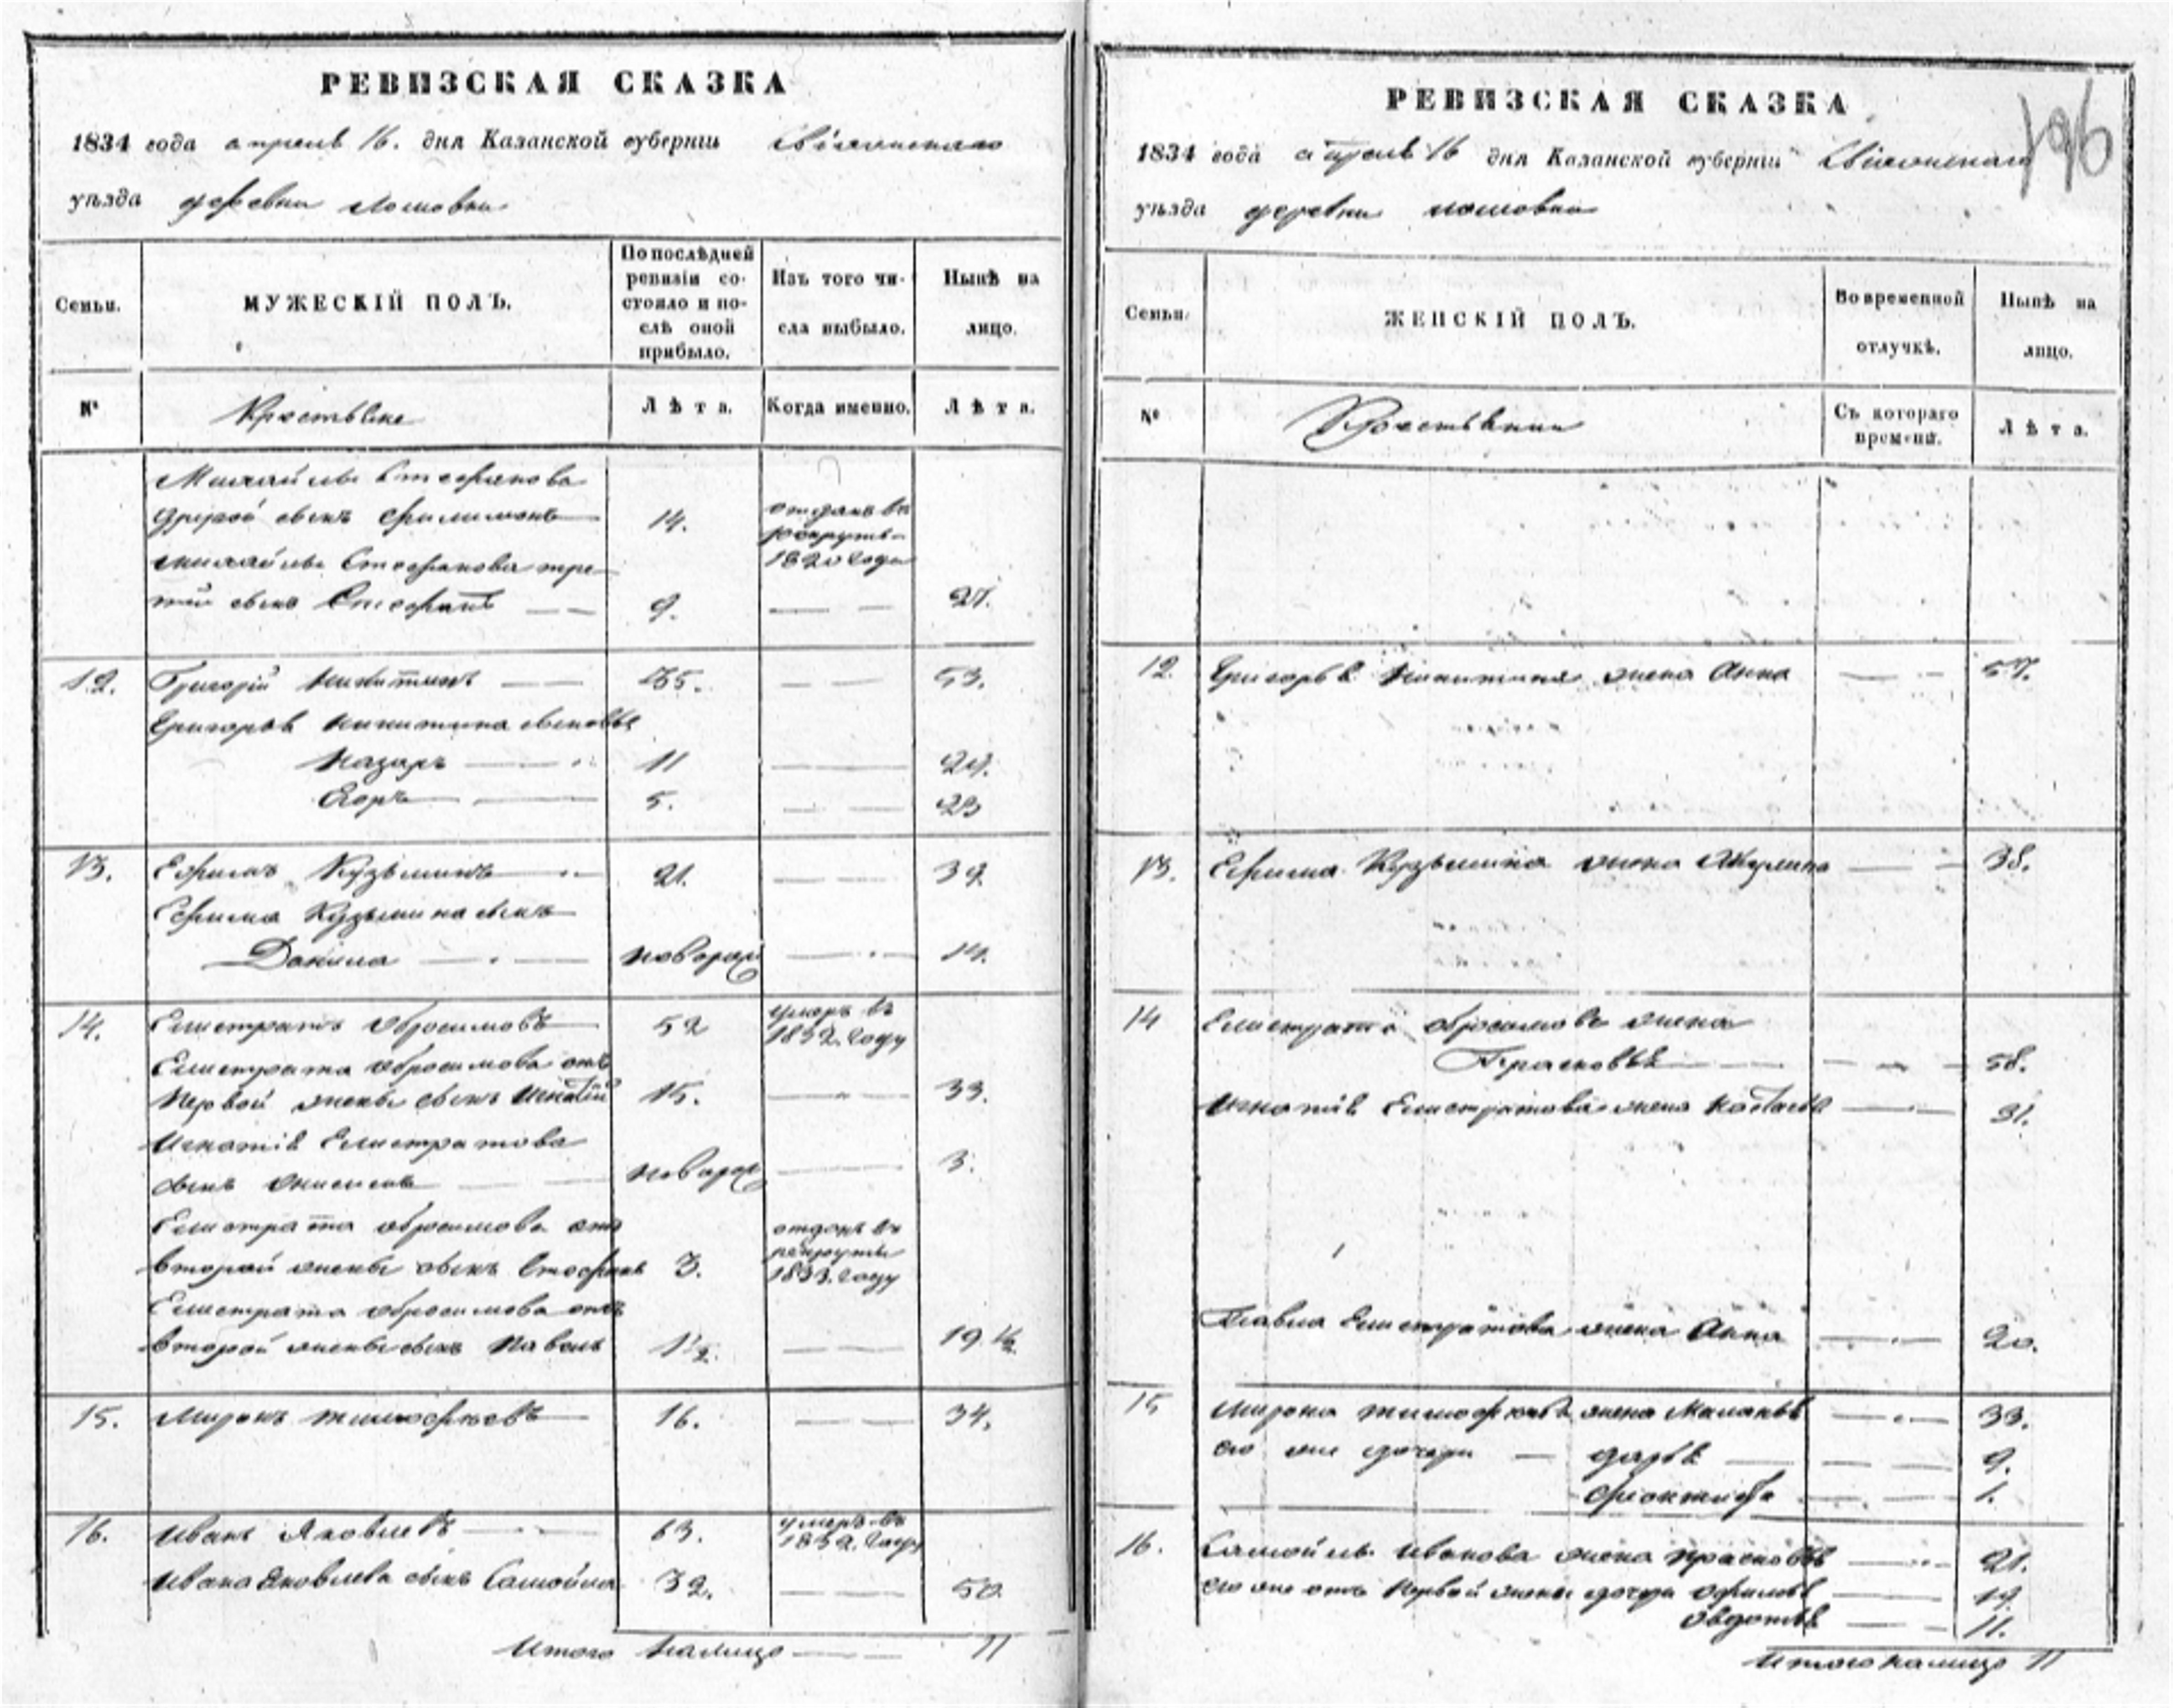 РЕВИЗСКАЯ СКАЗКА
1834 года апреля 16. дня Казанской губернiи Свiяжскаго
уѣзда деревни
Семьи.
МУЖЕСКIЙ ПОЛЪ.
По послѣдней
ревизiи со-
стояло и по-
слѣ оной
прибыло.
Изъ того чи-
сла выбыло.
Нынѣ на
лицо.
№
Крестьяне
Лѣта.
Когда именно.
Лѣта.
Михайлы Стефанова
другой сынъ Филимонъ 14. отданъ въ
рекруты
1820 года
Михайлы Стефанова тре-
тiй сынъ Стефанъ 9. 27.
12. Григорiй Никитинъ 35. 53.
Григорья Никитина сыновья
Назаръ 11 29.
Егоръ 5. 23
13. Ефимъ Кузьминъ 21. 39.
Ефима Кузьмина сынъ
Данила новорож 14.
14. Елистратъ Обросимовъ 52 умеръ въ
1832. году
Елистрата Обросимова отъ
первой жены сынъ Игнатiй 15. 33.
Игнатiя Елистратова
сынъ новорож 3.
Елистрата Обросимова отъ
второй жены сынъ Стефанъ 3. отданъ въ
рекруты
1833. году
Елистрата Обросимова отъ
второй жены сынъ Павелъ 1½. 19½.
15. Миронъ Тимофѣевъ 16. 34.
16. Иванъ Яковлевъ 63. умеръ въ
1832. году
Ивана Яковлева сынъ Самойла 32. 50.
Итого налицо 11
РЕВИЗСКАЯ СКАЗКА
196
1834 года апреля 16 дня Казанской губернiи Свiяжскаго
уѣзда деревни
Семьи.
ЖЕНСКIЙ ПОЛЪ.
Во временной
отлучкѣ.
Нынѣ на
лицо.
№
Съ котораго
времени.
Лѣта.
12. Григорья Никитина жена Анна 57.
13. Ефима Кузьмина жена Акулина 38.
14 Елистрата Обросимова жена
Прасковья 58.
Игнатiя Елистратова жена Настасья 31.
Павла Елистратова жена Анна 20.
15 Мирона Тимофѣева жена Маланья 33.
его же дочери Дарья 9.
1.
16. Самойлы Иванова жена Прасковья 21.
его же отъ первой жены дочери Офимья 19.
Овдотья 11.
Итого налицо 11